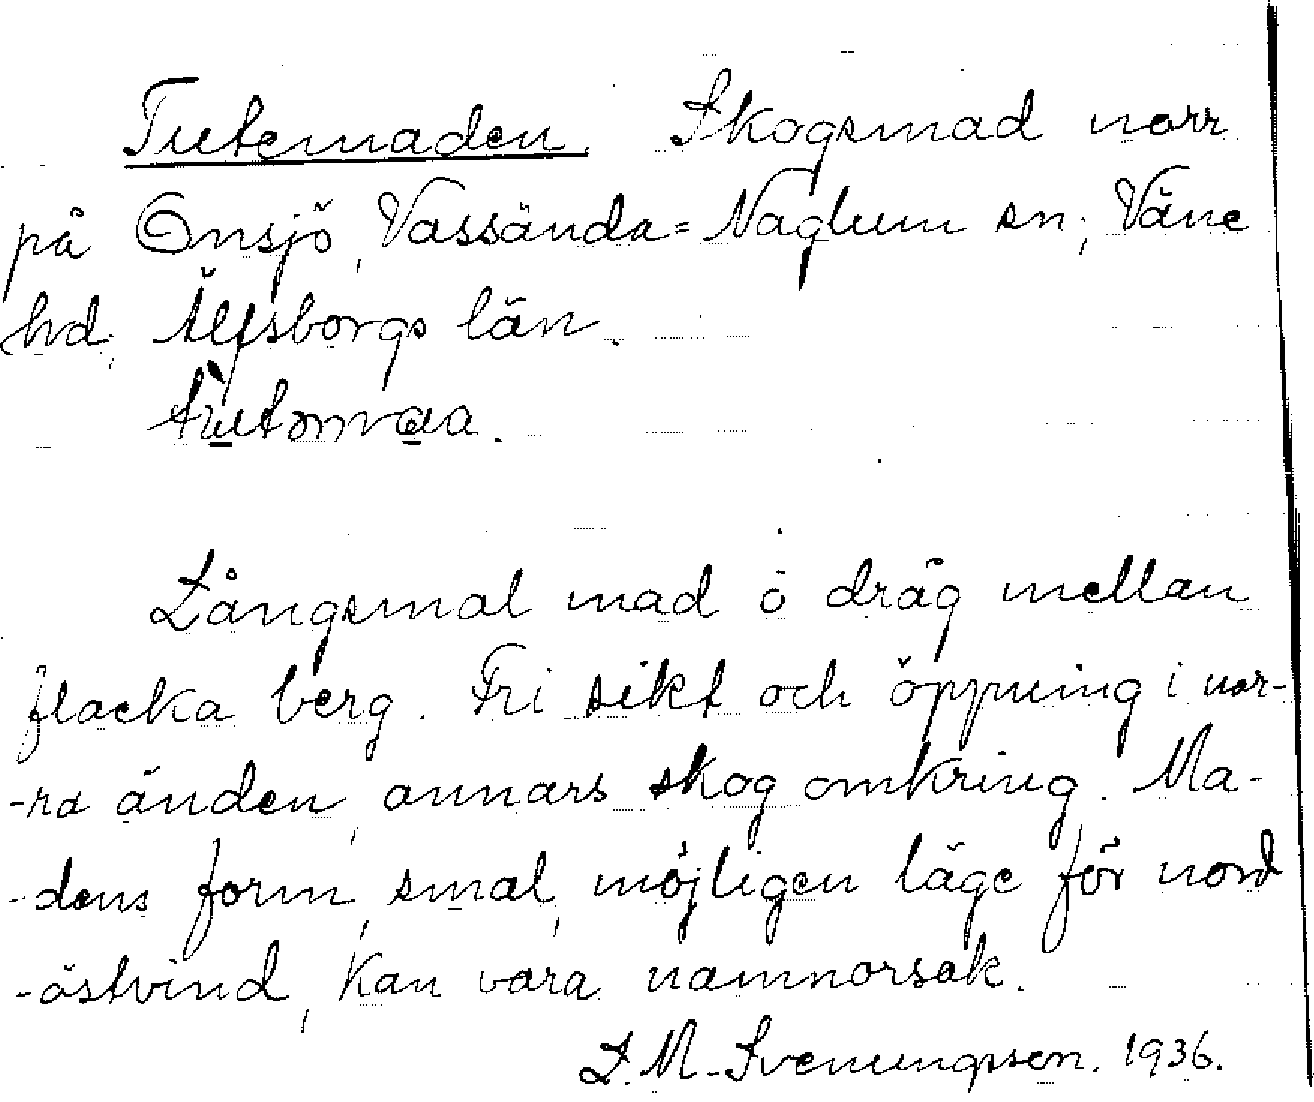 Tutemaden. Skogsmad norr
på Onsjö, Vassända=Naglum sn, Väne
hd, Älfsborgs län.
Långsmal mad o dråg mellan
flacka berg. Fri sikt och öppning i nor-
-ra änden, annars skog omkring. Ma-
-dens form, smal, möjligen läge för nord
-östvind, kan vara namnorsak.
L.M. Svenungsson. 1936.